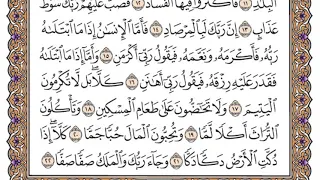 ٱلْبِلَٰدِ ١١ فَأَكْثَرُوا۟ فِيهَا ٱلْفَسَادَ ١٢ فَصَبَّ عَلَيْهِمْ رَبُّكَ سَوْطَ
عَذَابٍ ١٣ إِنَّ رَبَّكَ لَبِٱلْمِرْصَادِ ١٤ فَأَمَّا ٱلْإِنسَٰنُ إِذَا مَا ٱبْتَلَىٰهُ
رَبُّهُۥ فَأَكْرَمَهُۥ وَنَعَّمَهُۥ فَيَقُولُ رَبِّىٓ أَكْرَمَنِ ١٥ وَأَمَّآ إِذَا مَا ٱبْتَلَىٰهُ
فَقَدَرَ عَلَيْهِ رِزْقَهُۥ فَيَقُولُ رَبِّىٓ أَهَٰنَنِ ١٦ كَلَّا بَل لَّا تُكْرِمُونَ
ٱلْيَتِيمَ ١٧ وَلَا تَحَٰٓضُّونَ عَلَىٰ طَعَامِ ٱلْمِسْكِينِ ١٨ وَتَأْكُلُونَ
ٱلتُّرَاثَ أَكْلًا لَّمًّا ١٩ وَتُحِبُّونَ ٱلْمَالَ حُبًّا جَمًّا ٢٠ كَلَّآ إِذَا
دُكَّتِ ٱلْأَرْضُ دَكًّا دَكًّا ٢١ وَجَآءَ رَبُّكَ وَٱلْمَلَكُ صَفًّا صَفًّا ٢٢